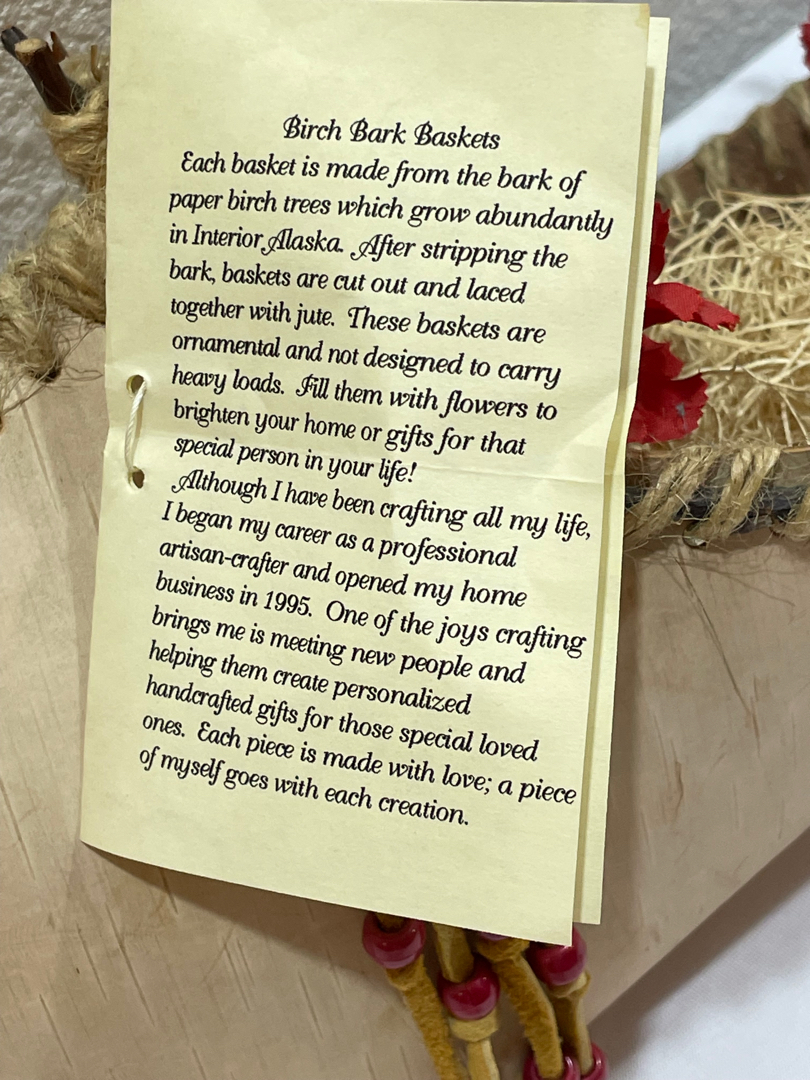 Birch Bark Baskets
Each basket is made from the bark of
paper birch trees which grow abundantly
in Interior Alaska. After stripping the
bark, baskets are cut out and laced
together with jute. These baskets are
ornamental and not designed to carry
heavy loads. Fill them with flowers to
brighten your home or gifts for that
special person in your life!
Although I have been crafting all my life,
I began my career as a professional
artisan-crafter and opened my home
business in 1995. One of the joys crafting
brings me is meeting new people and
helping them create personalized
handcrafted gifts for those special loved
ones. Each piece is made with love; a piece
of myself goes with each creation.